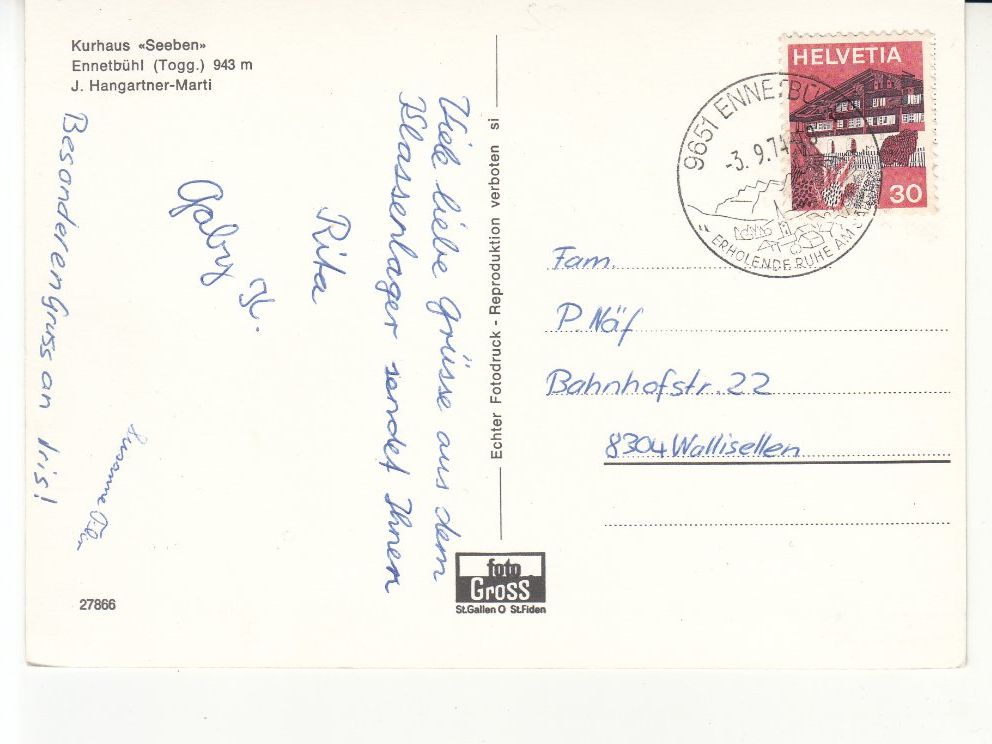 Kurhaus «Seeben»
Ennetbühl (Togg.) 943 m
J. Hangartner-Marti
Viele liebe Grüsse aus dem
Klassenlager sendet Ihnen
Rita
Gaby K.
Susanne
Besonderen Gruss an Iris!
27866
Echter Fotodruck - Reproduktion verboten si
foto
Gross
St.Gallen O St.Fiden
HELVETIA
30
9651 ENNETBÜ
-3. 9.74
ERHOLENDE RUHE AM
Fam.
P. Näf
Bahnhofstr. 22
8304 Wallisellen